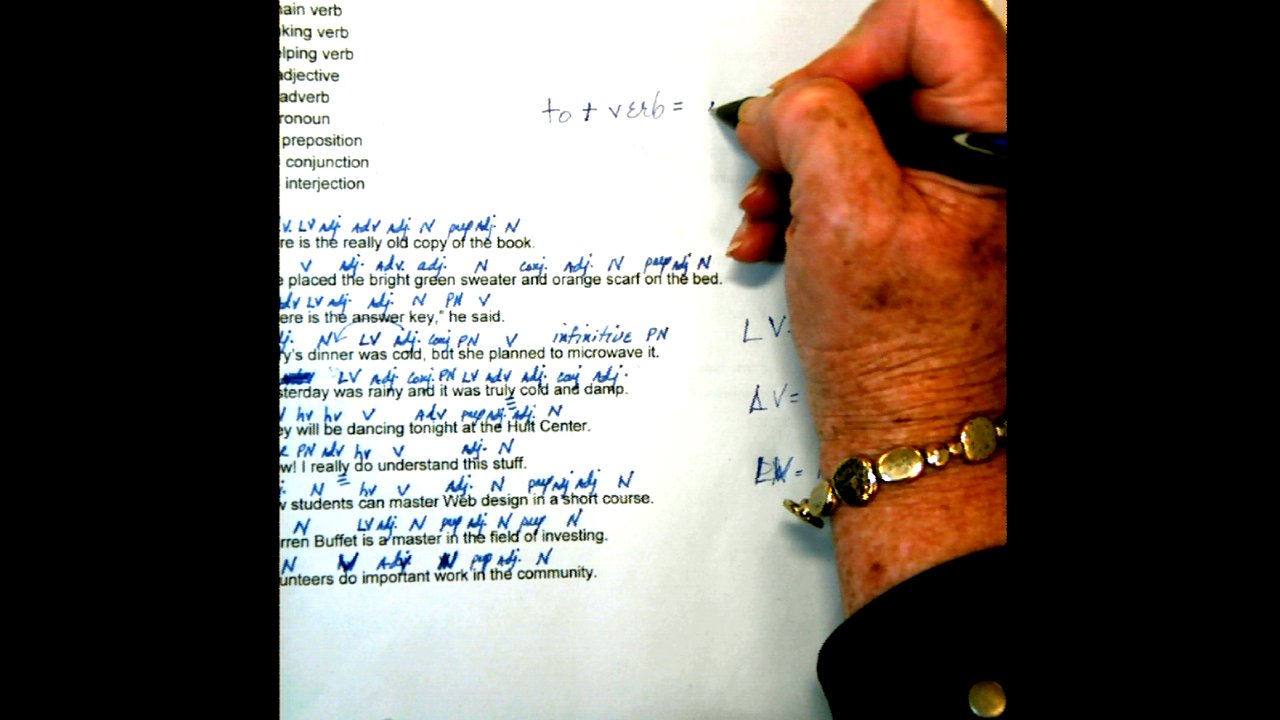 ain verb
king verb
lping verb
adjective
adverb
ronoun
preposition
conjunction
interjection
to + verb =
v. LV adj. Adv adj. N prep adj. N
re is the really old copy of the book.
V adj. Adv. adj. N conj. Adj. N prep adj N
e placed the bright green sweater and orange scarf on the bed.
adv LV adj. adj. N PN V
ere is the answer key," he said.
LV=
j. N LV adj. conj PN V infinitive PN
y's dinner was cold, but she planned to microwave it.
LV Adj conj. PN LV adv adj. conj Adj.
sterday was rainy and it was truly cold and damp.
AV=
hv hv V Adv prep adj. adj. N
ey will be dancing tonight at the Hult Center.
PN adv hv V adj. N
w! I really do understand this stuff.
N hv V Adj. N prep adj adj N
w students can master Web design in a short course.
N LV adj. N prep adj. N prep N
rren Buffet is a master in the field of investing.
N V Adj N prep adj. N
unteers do important work in the community.